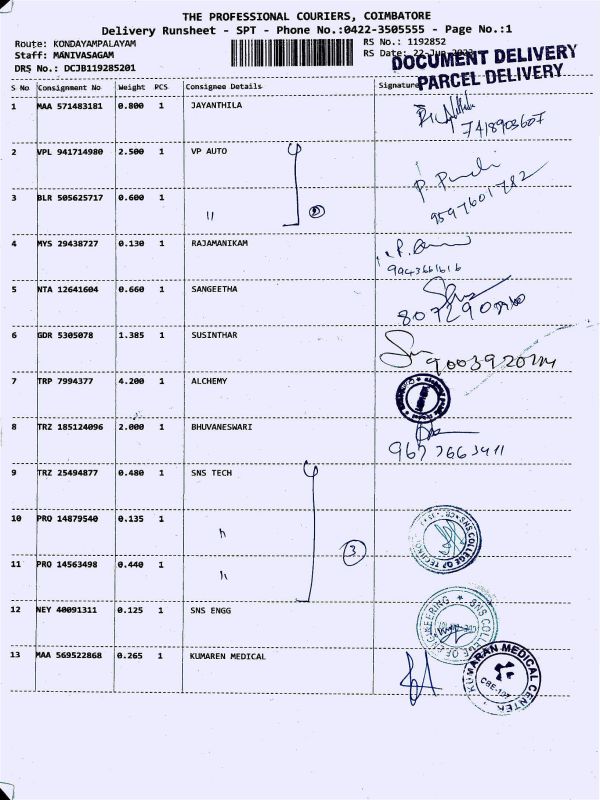 THE PROFESSIONAL COURIERS, COIMBATORE
Delivery Runsheet - SPT - Phone No.:0422-3505555 - Page No.:1
Route: KONDAYAMPALAYAM RS No.: 1192852
Staff: MANIVASAGAM RS Date: 22-Jun-2023
DRS No.: DCJB119285201
DOCUMENT DELIVERY
PARCEL DELIVERY
S No Consignment No Weight PCS Consignee Details Signature
1 MAA 571483181 0.800 1 JAYANTHILA
7418903607
2 VPL 941714980 2.500 1 VP AUTO
3 BLR 505625717 0.600 1 " 2
9597601782
4 MYS 29438727 0.130 1 RAJAMANIKAM
9943661616
5 NTA 12641604 0.660 1 SANGEETHA
6 GDR 5305078 1.385 1 SUSINTHAR
7 TRP 7994377 4.200 1 ALCHEMY
8 TRZ 185124096 2.000 1 BHUVANESWARI
9 TRZ 25494877 0.480 1 SNS TECH
10 PRO 14879540 0.135 1 "
3
11 PRO 14563498 0.440 1 "
SNS COLLEGE OF TECHNO
12 NEY 40091311 0.125 1 SNS ENGG
SNS COLLEGE OF ENGINEERING
13 MAA 569522868 0.265 1 KUMAREN MEDICAL
KUMARAN MEDICAL CENTER